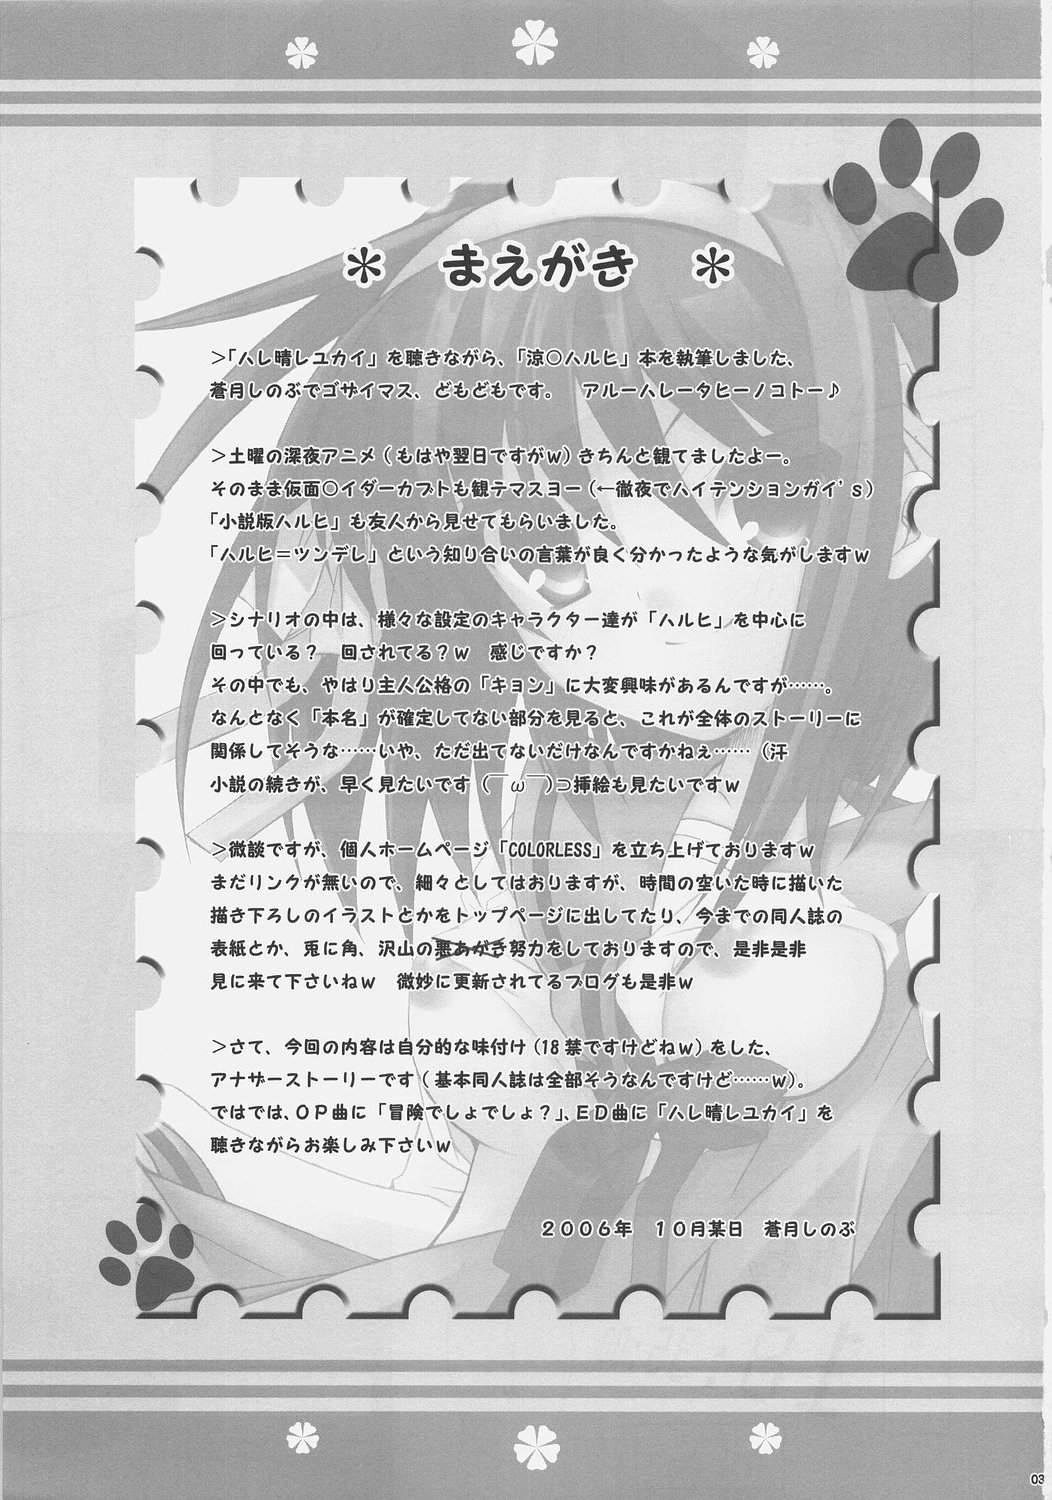 ＊　まえがき　＊
＞「ハレ晴レユカイ」を聴きながら、「涼○ハルヒ」本を執筆しました、
蒼月しのぶでゴザイマス、どもどもです。　アルーハレータヒーノコトー♪
＞土曜の深夜アニメ（もはや翌日ですがｗ）きちんと観てましたよー。
そのまま仮面○イダーカブトも観テマスヨー（←徹夜でハイテンションガイ's）
「小説版ハルヒ」も友人から見せてもらいました。
「ハルヒ＝ツンデレ」という知り合いの言葉が良く分かったような気がしますｗ
＞シナリオの中は、様々な設定のキャラクター達が「ハルヒ」を中心に
回っている？　回されてる？ｗ　感じですか？
その中でも、やはり主人公格の「キョン」に大変興味があるんですが……。
なんとなく「本名」が確定してない部分を見ると、これが全体のストーリーに
関係してそうな……いや、ただ出てないだけなんですかねぇ……（汗
小説の続きが、早く見たいです（￣ω￣）⊃挿絵も見たいですｗ
＞微談ですが、個人ホームページ「COLORLESS」を立ち上げておりますｗ
まだリンクが無いので、細々としてはおりますが、時間の空いた時に描いた
描き下ろしのイラストとかをトップページに出してたり、今までの同人誌の
表紙とか、兎に角、沢山の悪あがき努力をしておりますので、是非是非
見に来て下さいねｗ　微妙に更新されてるブログも是非ｗ
＞さて、今回の内容は自分的な味付け（18禁ですけどねｗ）をした、
アナザーストーリーです（基本同人誌は全部そうなんですけど……ｗ）。
ではでは、ＯＰ曲に「冒険でしょでしょ？」、ＥＤ曲に「ハレ晴レユカイ」を
聴きながらお楽しみ下さいｗ
２００６年　１０月某日　蒼月しのぶ
03